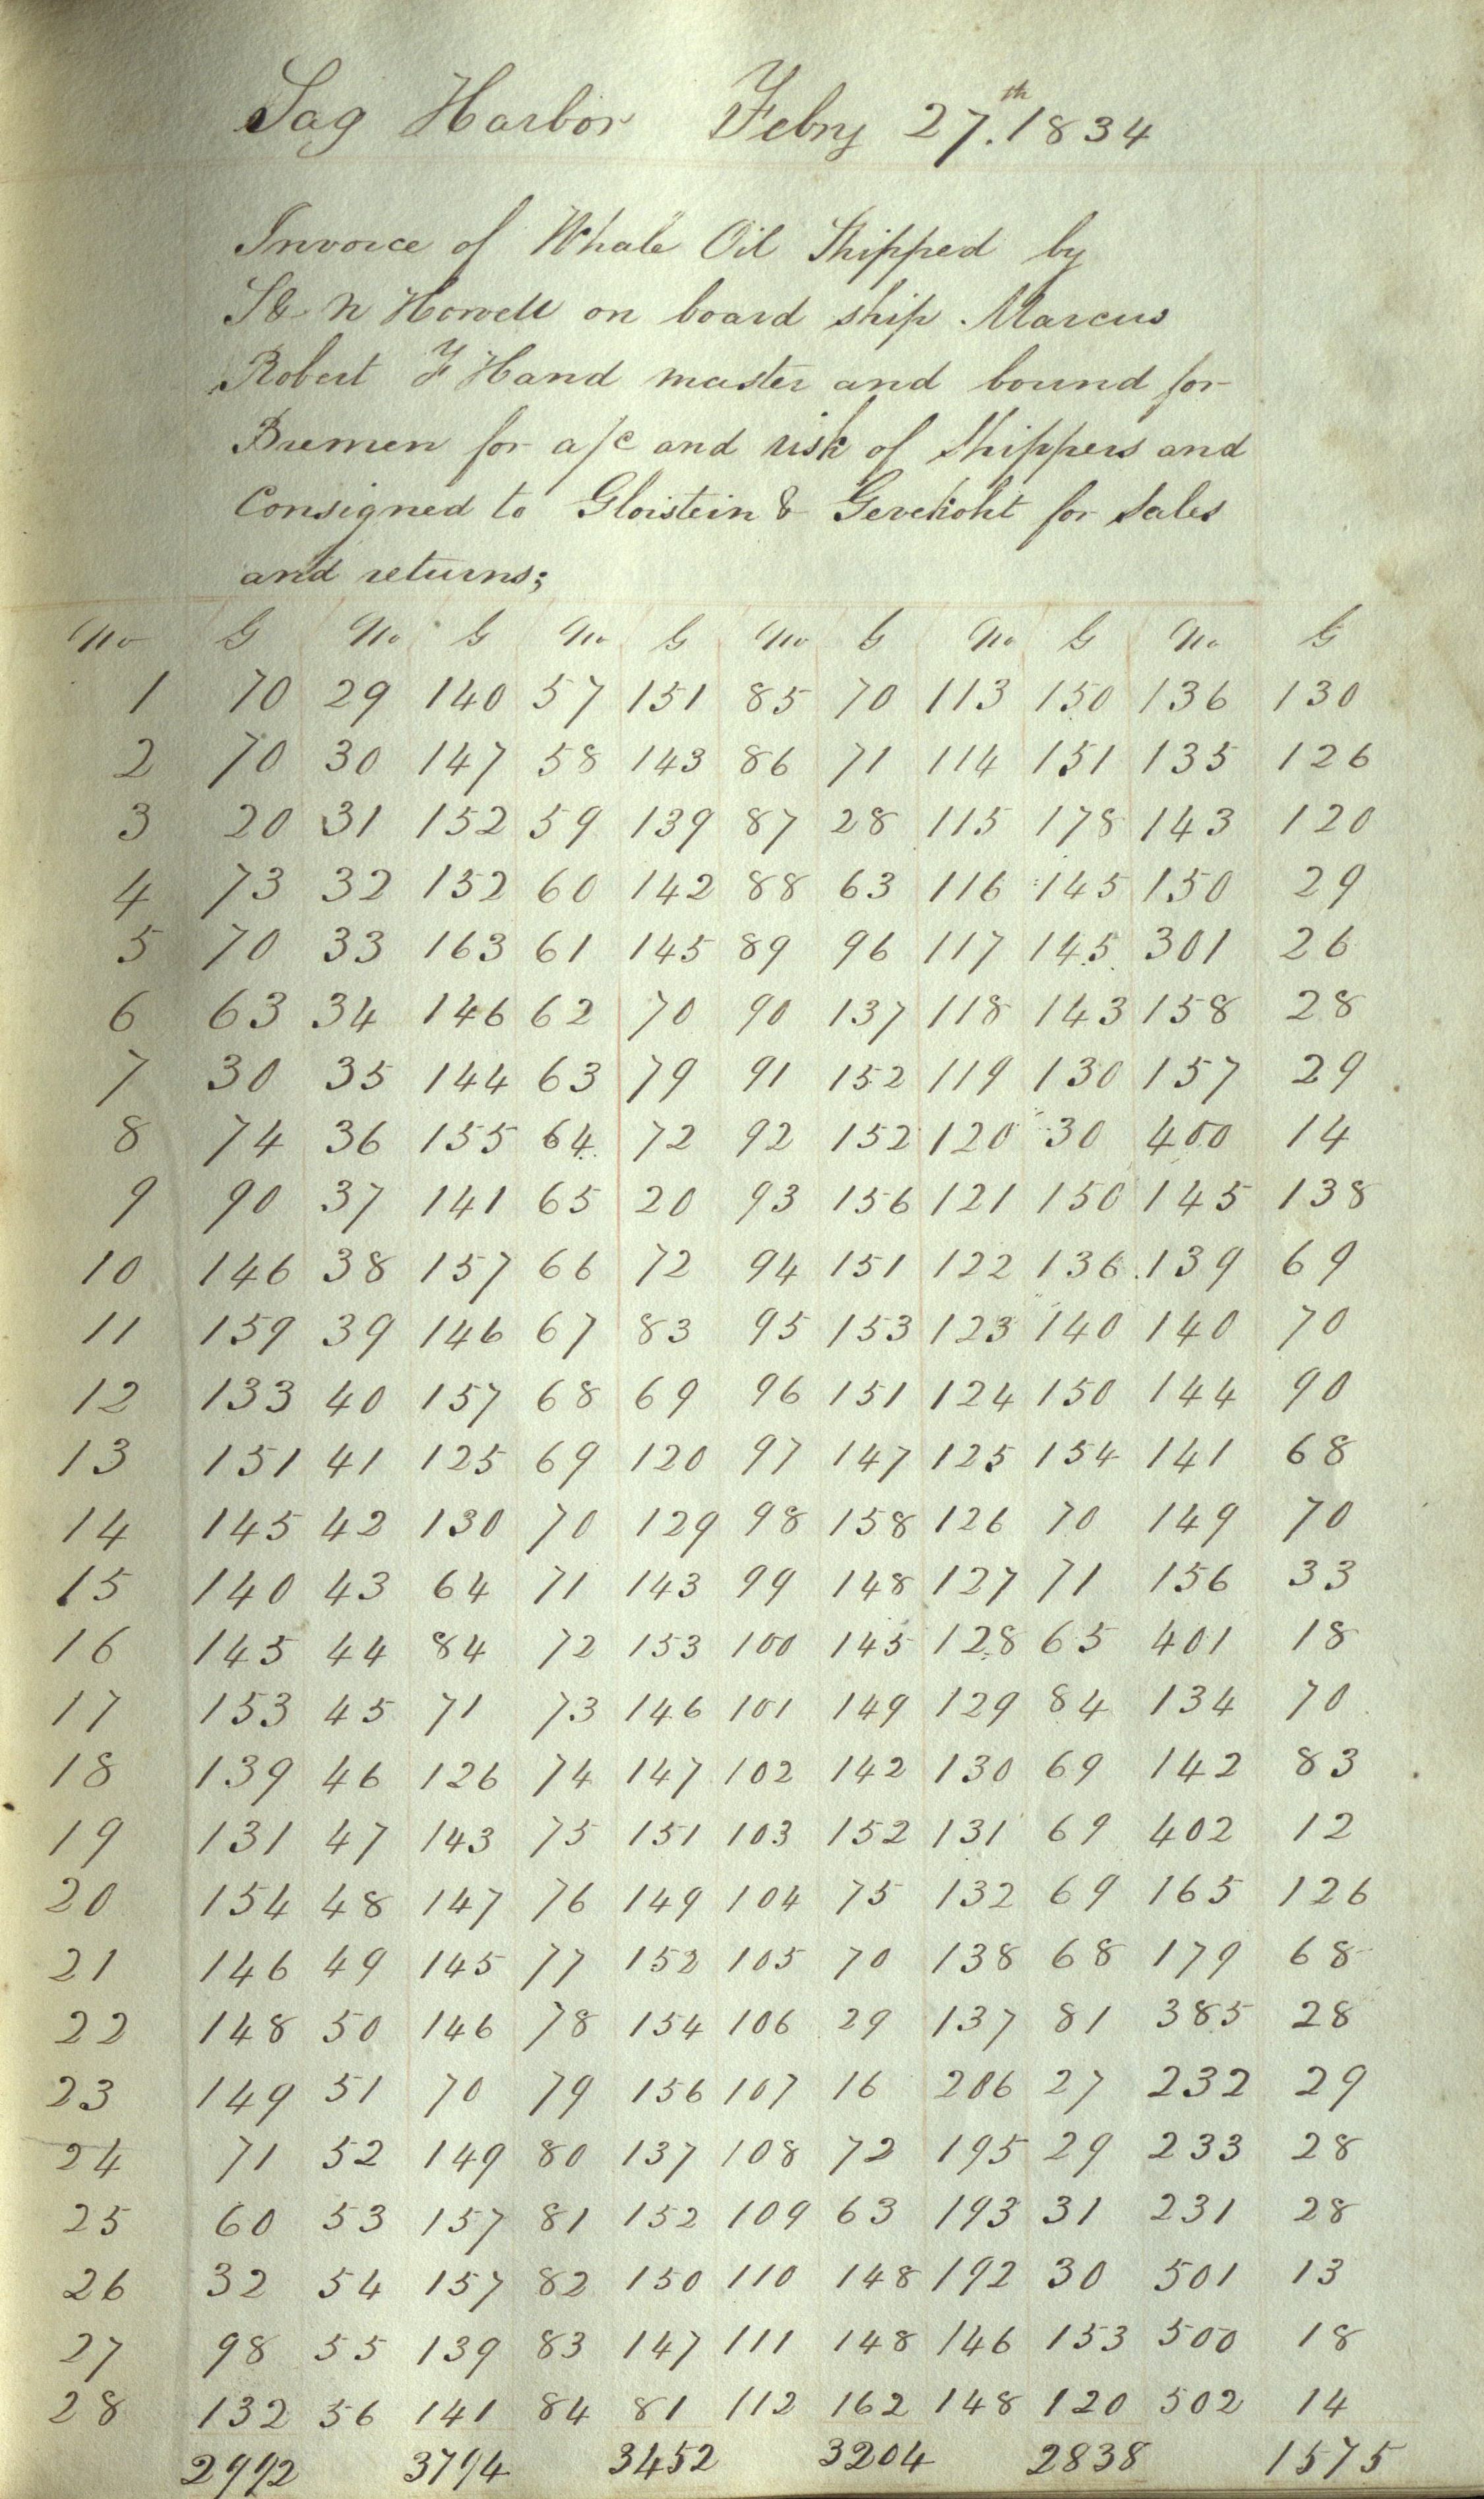 Sag Harbor Febry 27.th 1834
Invoice of Whale Oil Shipped by
S & N Howell on board ship Marcus
Robert F Hand master and bound for
Bremen for a/c and risk of Shippers and
Consigned to Gloistein & Gevekoht for Sales
and returns;
No G No G No G No G No G No G
1 70 29 140 57 151 85 70 113 150 136 130
2 70 30 147 58 143 86 71 114 151 135 126
3 20 31 152 59 139 87 28 115 178 143 120
4 73 32 152 60 142 88 63 116 145 150 29
5 70 33 163 61 145 89 96 117 145 301 26
6 63 34 146 62 70 90 137 118 143 158 28
7 30 35 144 63 79 91 152 119 130 157 29
8 74 36 155 64 72 92 152 120 30 400 14
9 90 37 141 65 20 93 156 121 150 145 138
10 146 38 157 66 72 94 151 122 136 139 69
11 159 39 146 67 83 95 153 123 140 140 70
12 133 40 157 68 69 96 151 124 150 144 90
13 151 41 125 69 120 97 147 125 154 141 68
14 145 42 130 70 129 98 158 126 70 149 70
15 140 43 64 71 143 99 148 127 71 156 33
16 145 44 84 72 153 100 145 128 65 401 18
17 153 45 71 73 146 101 149 129 84 134 70
18 139 46 126 74 147 102 142 130 69 142 83
19 131 47 143 75 151 103 152 131 69 402 12
20 154 48 147 76 149 104 75 132 69 165 126
21 146 49 145 77 152 105 70 138 68 179 68
22 148 50 146 78 154 106 29 137 81 385 28
23 149 51 70 79 156 107 16 206 27 232 29
24 71 52 149 80 137 108 72 195 29 233 28
25 60 53 157 81 152 109 63 193 31 231 28
26 32 54 157 82 150 110 148 192 30 501 13
27 98 55 139 83 147 111 148 146 153 500 18
28 132 56 141 84 81 112 162 148 120 502 14
2992 3794 3452 3204 2838 1575